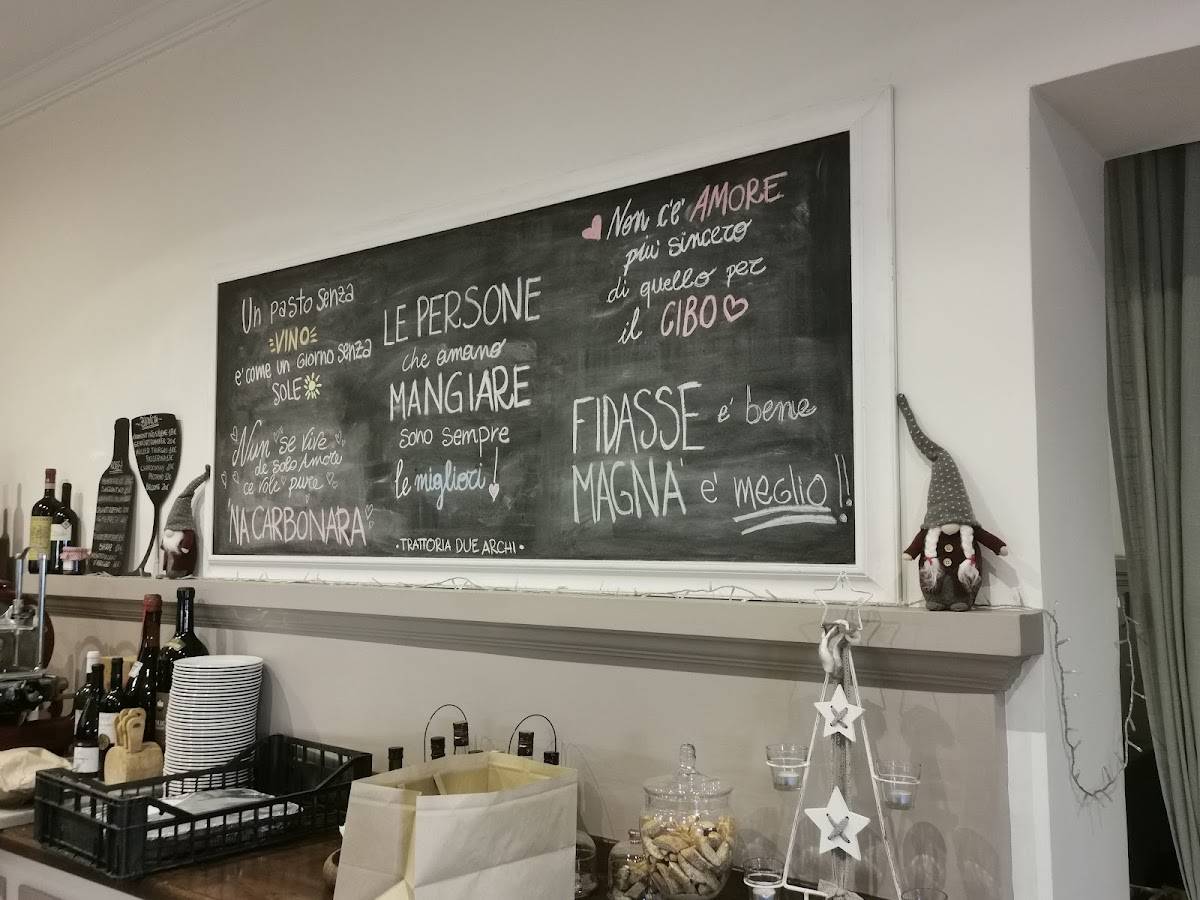 Un pasto senza
VINO
e' come un giorno senza
SOLE
Nun se vive
de solo Amore
ce vole pure
'NA CARBONARA
LE PERSONE
che amano
MANGIARE
sono sempre
le migliori!
• TRATTORIA DUE ARCHI •
Non c'e' AMORE
piu' sincero
di quello per
il CIBO
FIDASSE e' bene
MAGNA' e' meglio!!
BIANCHI